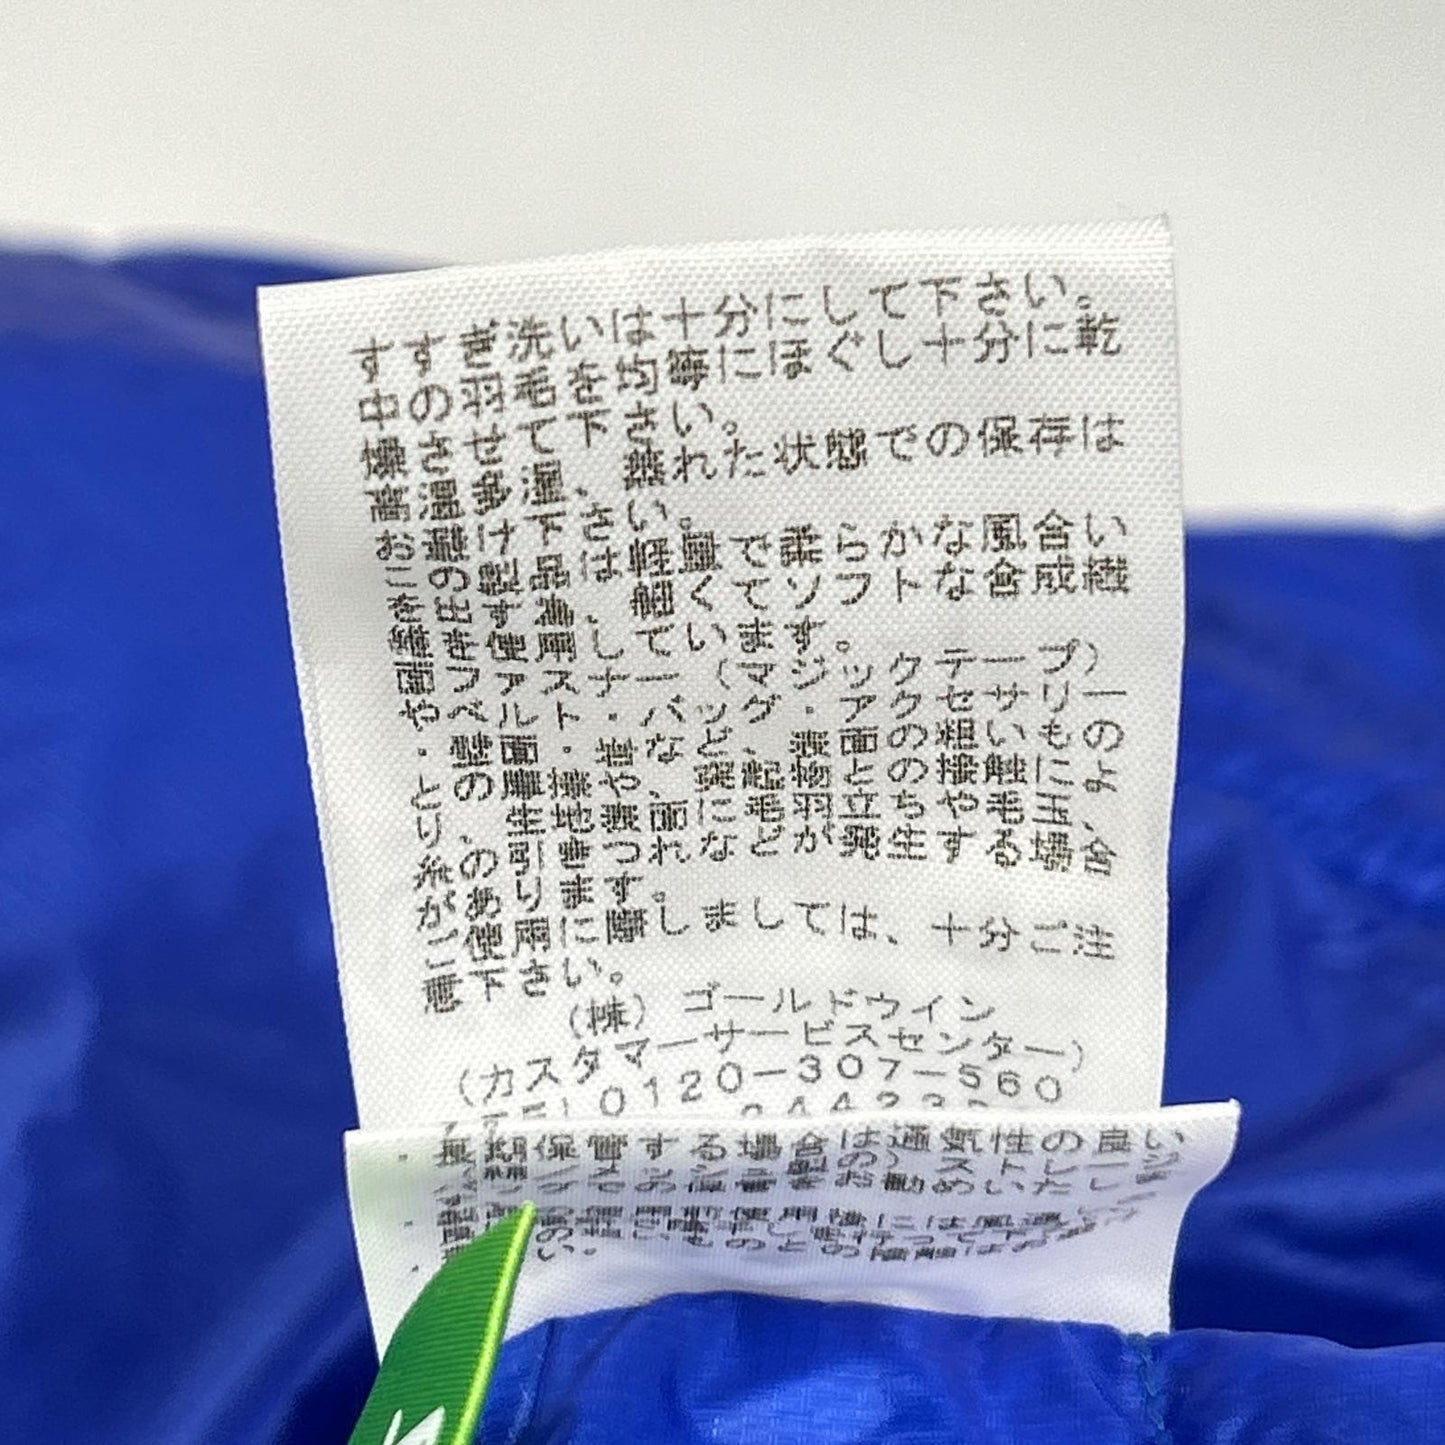 すすぎ洗いは十分にして下さい。
中の羽毛を均等にほぐし十分に乾
燥させて下さい。
高温多湿、蒸れた状態での保存は
お避け下さい。
この製品は軽量で柔らかな風合い
を出す為、細くてソフトな合成繊
維を使用しています。
面ファスナー（マジックテープ）
や、ベルト・バッグ・アクセサリー
・壁面・岩など、表面の粗いもの
との摩擦や、突起物との接触によ
り、生地表面に毛羽立ちや毛玉、
糸の引きつれなどが発生する場合
があります。
ご使用に際しましては、十分ご注
意下さい。
（株）ゴールドウイン
（カスタマーサービスセンター）
0120-307-560
・長期保管する場合は通気性の良い